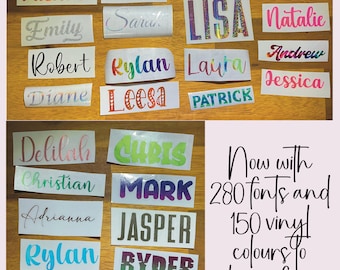 Emily
Sarah
LISA
Natalie
Robert
Rylan
Laura
Andrew
Diane
Leesa
PATRICK
Jessica
Delilah
CHRIS
Christian
MARK
Adrianna
JASPER
Rylan
RYDER
Now with
280 fonts and
150 vinyl
colours to